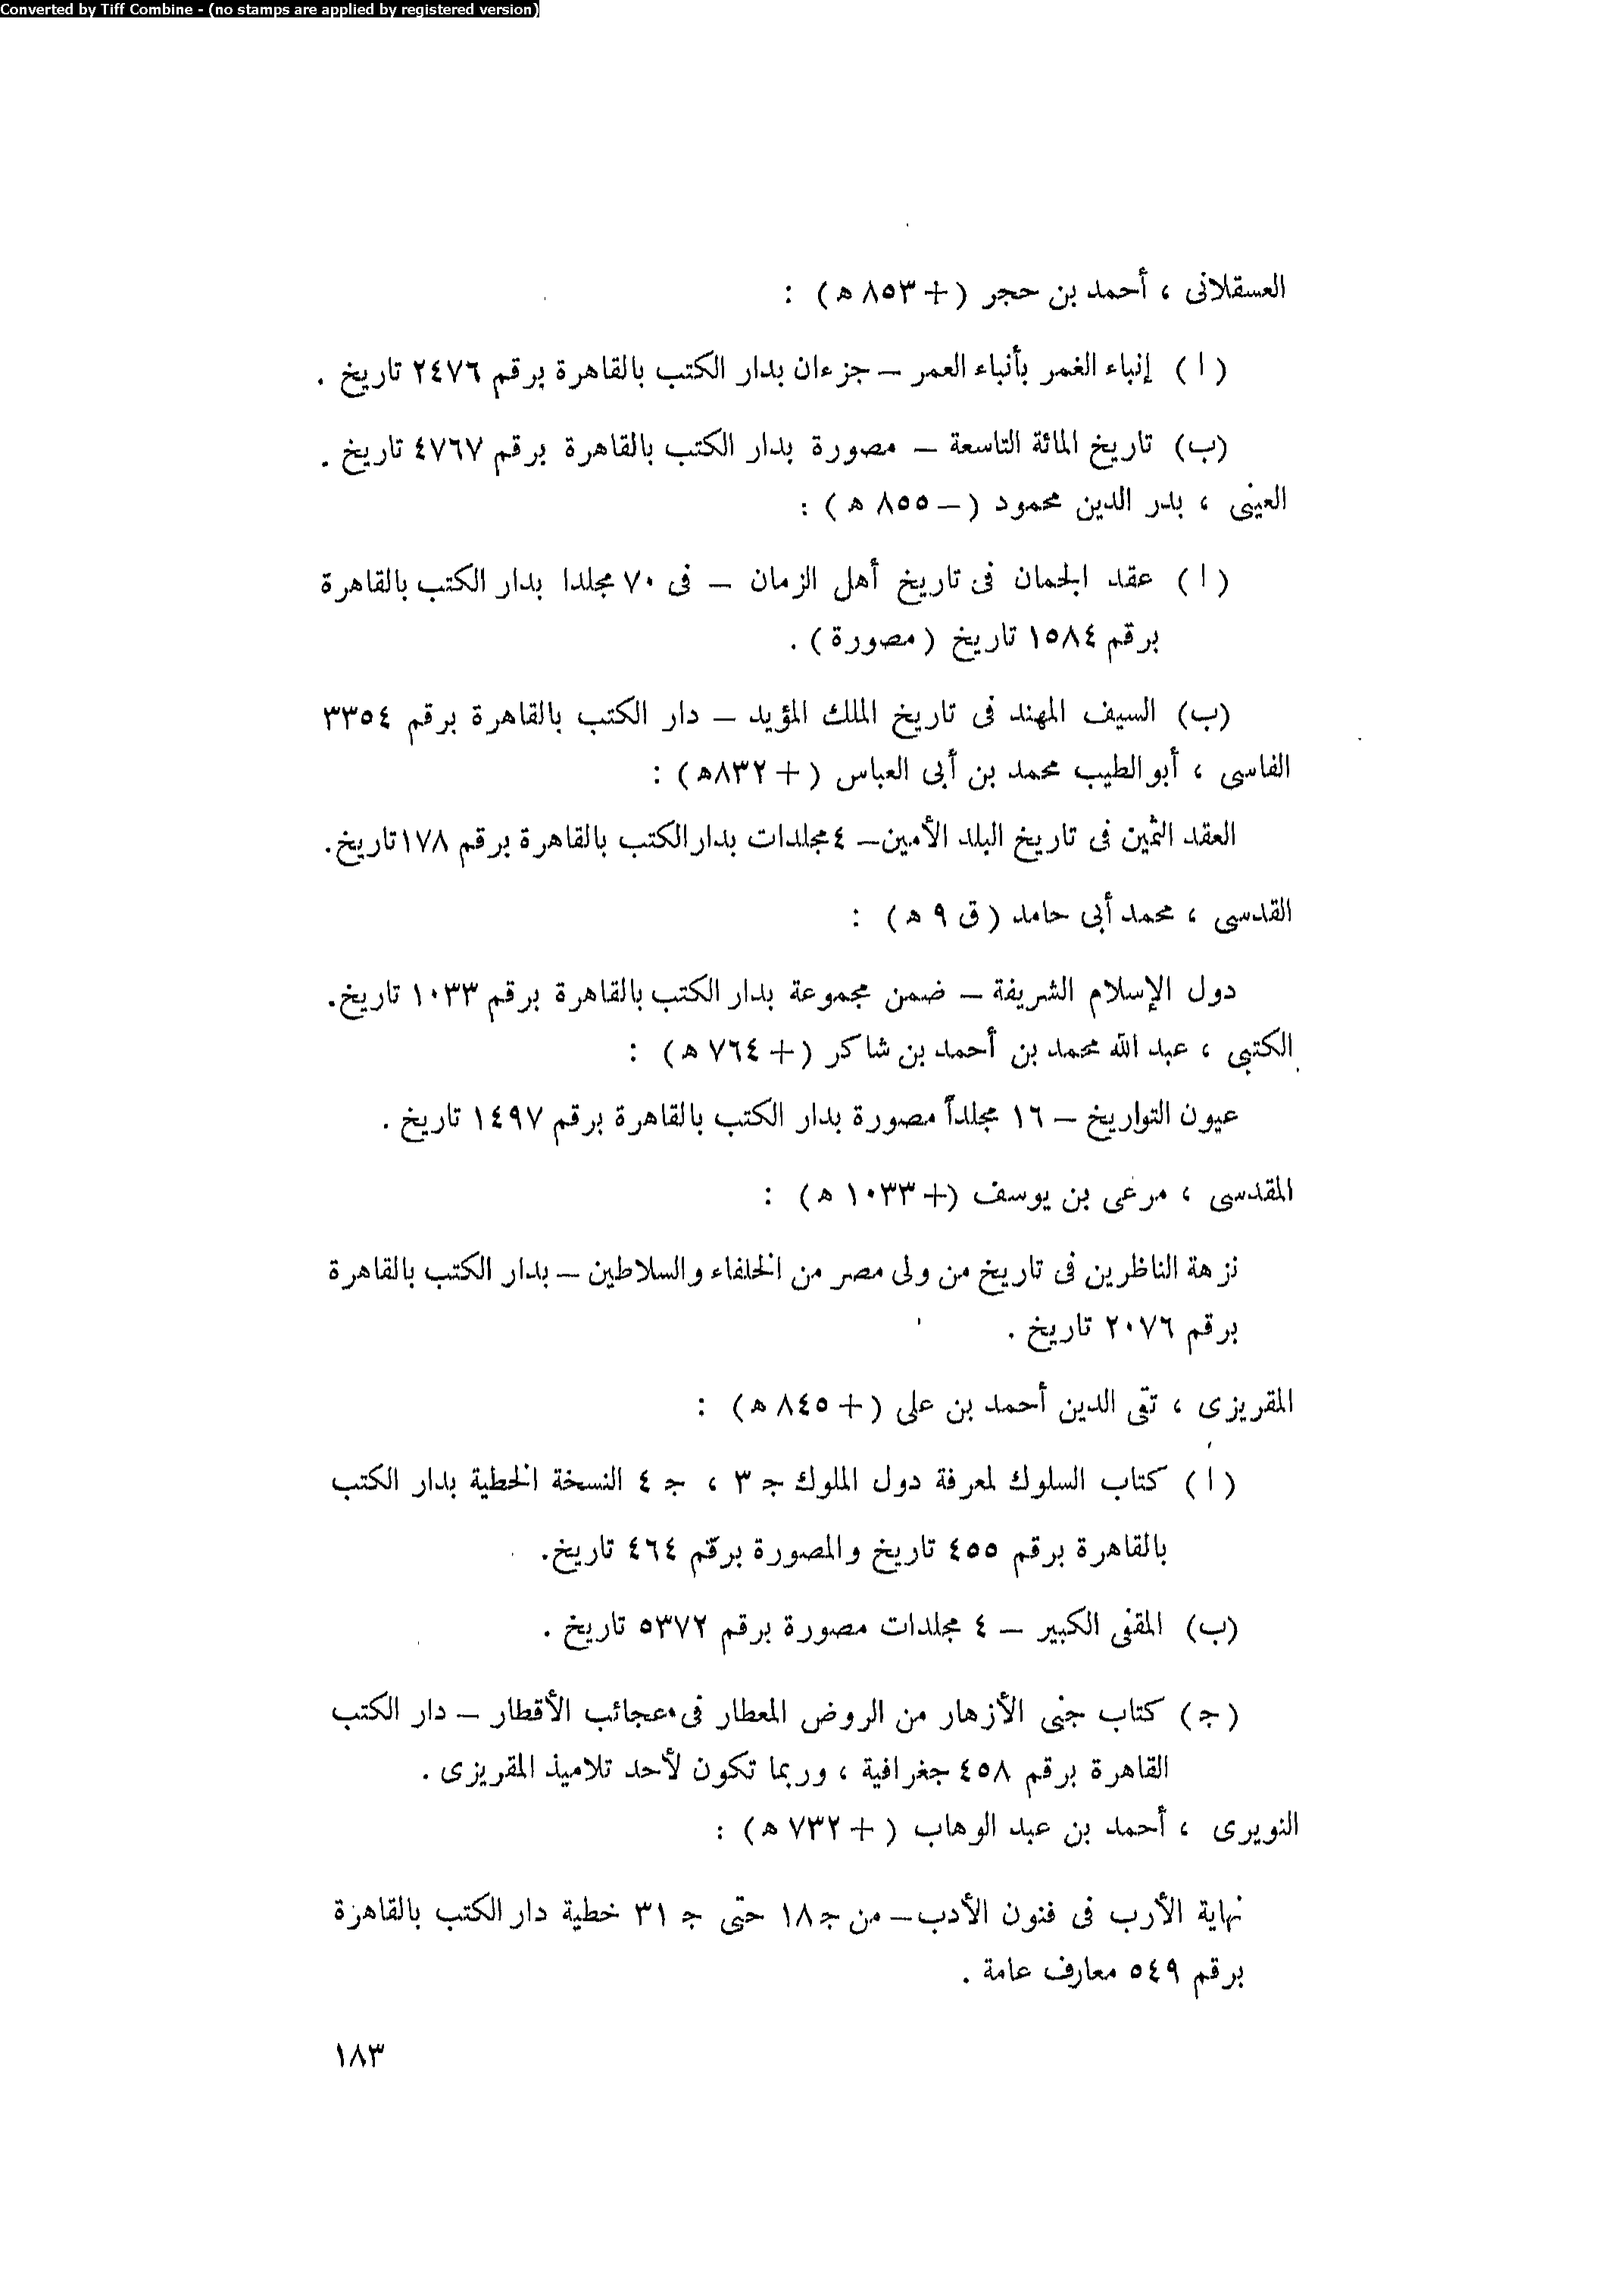 Converted by Tiff Combine - (no stamps are applied by registered version)
العسقلانى ، أحمد بن حجر ( + ٨٥٣ ه ) :
( ا ) إنباء الغمر بأنباء العمر – جزءان بدار الكتب بالقاهرة برقم ٢٤٧٦ تاريخ .
(ب) تاريخ المائة التاسعة – مصورة بدار الكتب بالقاهرة برقم ٤٧٦٧ تاريخ .
العينى ، بدر الدين محمود ( – ٨٥٥ ه ) :
( ا ) عقد الجمان فى تاريخ أهل الزمان – فى ٧٠ مجلدا بدار الكتب بالقاهرة
برقم ١٥٨٤ تاريخ ( مصورة ) .
(ب) السيف المهند فى تاريخ الملك المؤيد – دار الكتب بالقاهرة برقم ٣٣٥٤
الفاسى ، أبو الطيب محمد بن أبى العباس ( + ٨٣٢ه ) :
العقد الثمين فى تاريخ البلد الأمين – ٤ مجلدات بدار الكتب بالقاهرة برقم ١٧٨ تاريخ.
القدسى ، محمد أبى حامد ( ق ٩ ه ) :
دول الإسلام الشريفة – ضمن مجموعة بدار الكتب بالقاهرة برقم ١٠٣٣ تاريخ.
الكتبى ، عبد الله محمد بن أحمد بن شاكر ( + ٧٦٤ ه ) :
عيون التواريخ – ١٦ مجلداً مصورة بدار الكتب بالقاهرة برقم ١٤٩٧ تاريخ .
المقدسى ، مرعى بن يوسف ( + ١٠٣٣ ه ) :
نزهة الناظرين فى تاريخ من ولى مصر من الخلفاء والسلاطين – بدار الكتب بالقاهرة
برقم ٢٠٧٦ تاريخ .
المقريزى ، تقى الدين أحمد بن على ( + ٨٤٥ ه ) :
( ا ) كتاب السلوك لمعرفة دول الملوك ج ٣ ، ج ٤ النسخة الخطية بدار الكتب
بالقاهرة برقم ٤٥٥ تاريخ والمصورة برقم ٤٦٤ تاريخ.
(ب) المقفى الكبير – ٤ مجلدات مصورة برقم ٥٣٧٢ تاريخ .
(ج) كتاب جنى الأزهار من الروض المعطار فى عجائب الأقطار – دار الكتب
القاهرة برقم ٤٥٨ جغرافية ، وربما تكون لأحد تلاميذ المقريزى .
النويرى ، أحمد بن عبد الوهاب ( + ٧٣٢ ه ) :
نهاية الأرب فى فنون الأدب – من ج ١٨ حتى ج ٣١ خطية دار الكتب بالقاهرة
برقم ٥٤٩ معارف عامة .
١٨٣